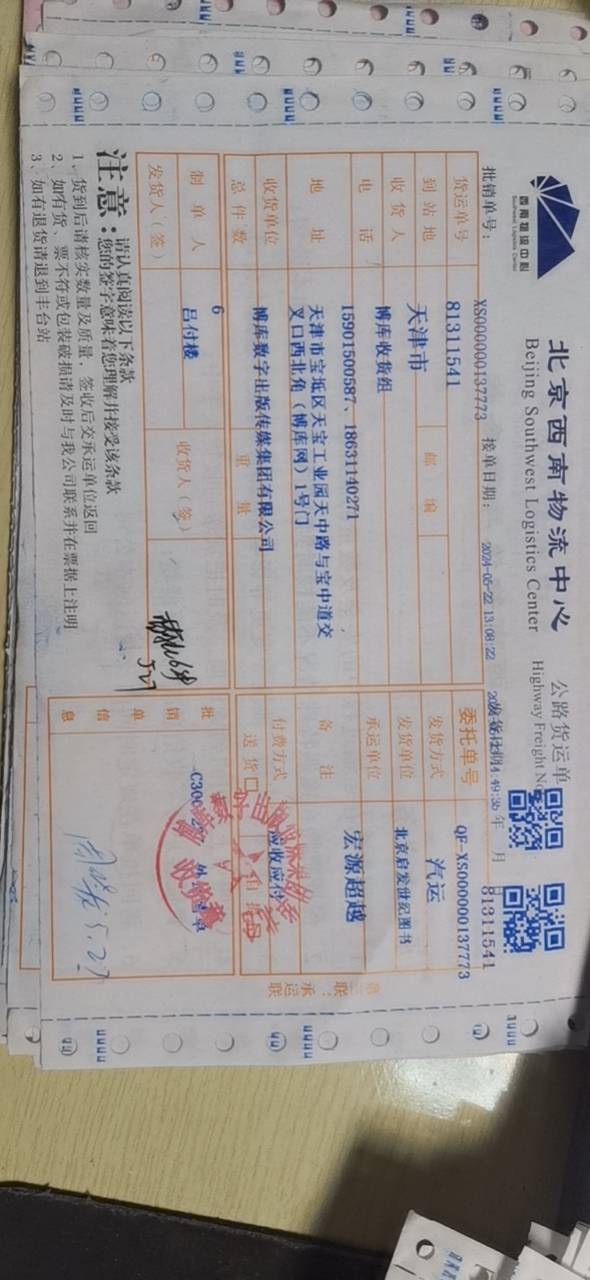 西南物流中心
Southwest Logistics Center
北京西南物流中心
公路货运单
Beijing Southwest Logistics Center
Highway Freight
81311541
批销单号：
XS000000137773
接单日期：
2024-05-22 13:08:22
年
月
货运单号
81311541
委托单号
QF-XS000000137773
到站地
天津市
邮编
发货方式
汽运
收货人
博库收货组
发货单位
北京启发世纪图书
电话
15901500587、18631140271
承运单位
宏源超越
地址
天津市宝坻区天宝工业园天中路与宝中道交
叉口西北角（博库网）1号门
备注
收货单位
博库数字出版传媒集团有限公司
付费方式
应收应付
总件数
6
重量
送货
制单人
吕付楼
收货人（签）
发货人（签）
批销单信息
5.27
5.27
联：承运
注意：
请认真阅读以下条款
您的签字意味着您理解并接受该条款
1、货到后请核实数量及质量，签收后交承运单位返回
2、如有货，票不符或包装破损请及时与我公司联系并在票据上注明
3、如有退货请退到丰台站